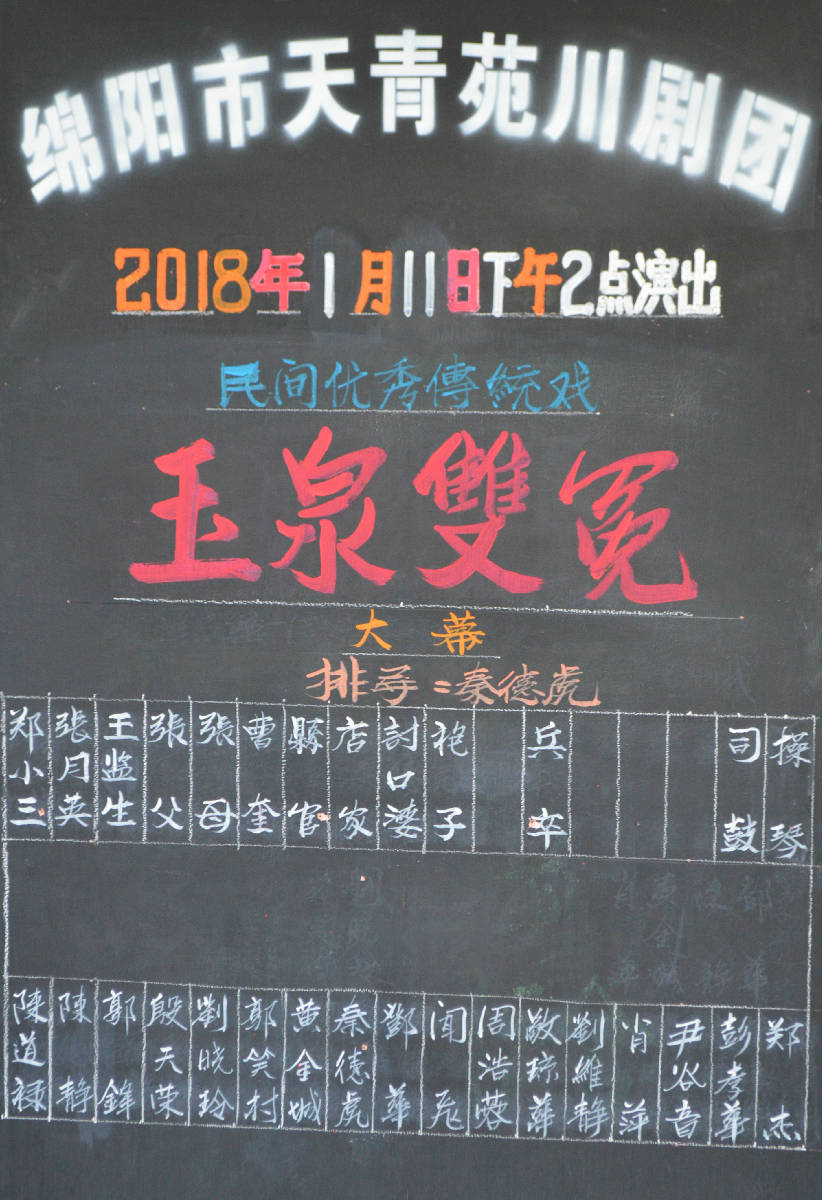 绵阳市天青苑川剧团
2018年1月11日下午2点演出
民间优秀傳統戏
玉泉雙冤
大幕
排导:秦德虎
郑小三
張月英
王监生
張父
張母
曹奎
縣官
店家
討口婆
袍子
兵卒
司鼓
操琴
陳道禄
陳静
郭鉾
殷天荣
劉晓玲
郭笑村
黄金城
秦德虎
鄧華
闻飞
周浩蓉
敬琼華
劉維静
肖萍
尹谷音
彭孝華
郑杰